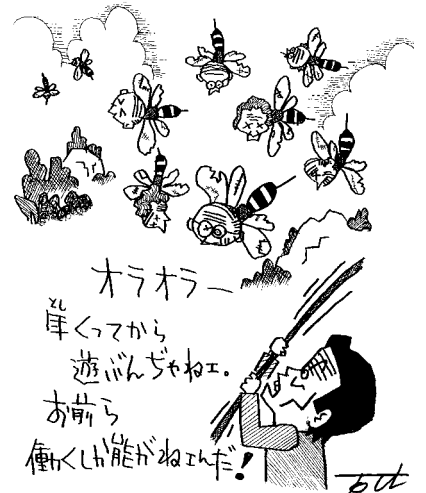 オラオラー
くってから
遊ぶんぢゃねェ。
お前ら
働くしか能がねェんだ!